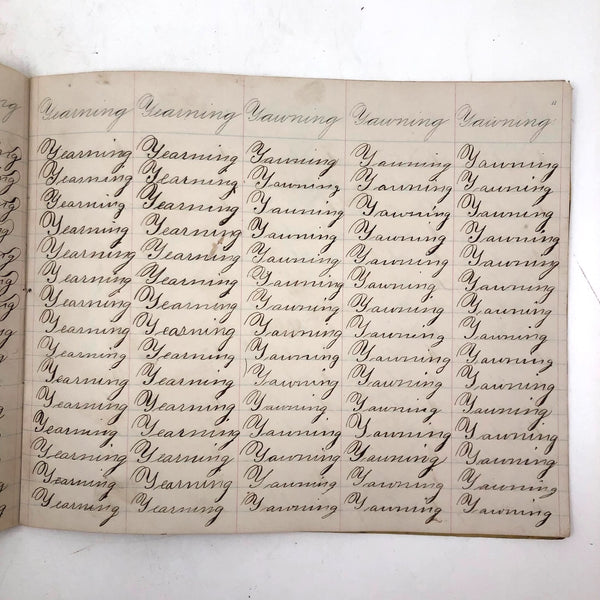 11
Yearning Yearning Yawning Yawning Yawning
Yearning Yearning Yawning Yawning Yawning
Yearning Yearning Yawning Yawning Yawning
Yearning Yearning Yawning Yawning Yawning
Yearning Yearning Yawning Yawning Yawning
Yearning Yearning Yawning Yawning Yawning
Yearning Yearning Yawning Yawning Yawning
Yearning Yearning Yawning Yawning Yawning
Yearning Yearning Yawning Yawning Yawning
Yearning Yearning Yawning Yawning Yawning
Yearning Yearning Yawning Yawning Yawning
Yearning Yearning Yawning Yawning Yawning
Yearning Yearning Yawning Yawning Yawning
Yearning Yearning Yawning Yawning Yawning
Yearning Yearning Yawning Yawning Yawning
Yearning Yearning Yawning Yawning Yawning